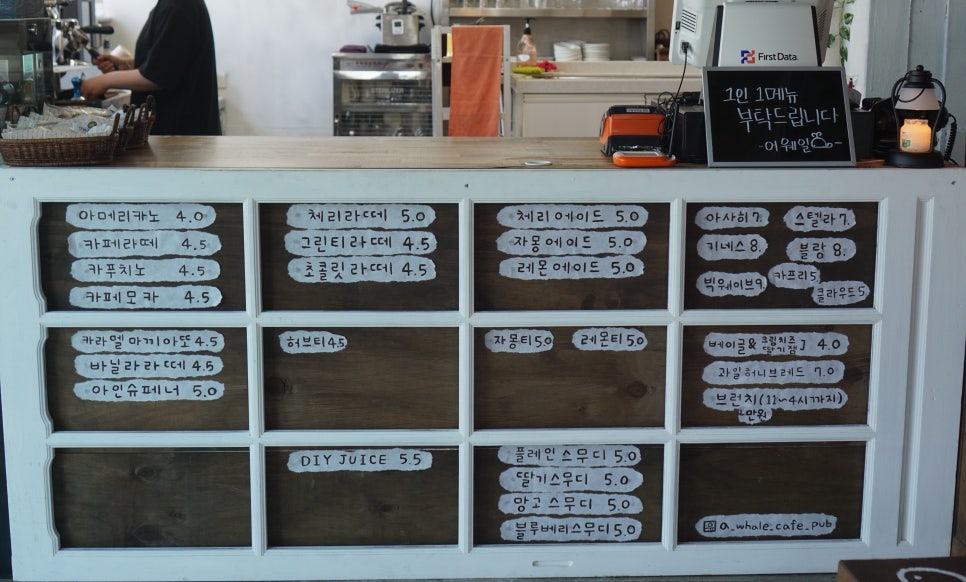 First Data.
1인 1메뉴
부탁드립니다
-어웨일-
아메리카노 4.0
카페라떼 4.5
카푸치노 4.5
카페모카 4.5
체리라떼 5.0
그린티라떼 4.5
초콜릿라떼 4.5
체리에이드 5.0
자몽에이드 5.0
레몬에이드 5.0
아사히 7.
스텔라 7.
기네스 8.
블랑 8.
빅웨이브 9.
카프리 5.
클라우드 5
카라멜 마끼아또 4.5
바닐라라떼 4.5
아인슈페너 5.0
허브티 4.5
자몽티 5.0
레몬티 5.0
베이글& 크림치즈 딸기잼 ] 4.0
과일허니브레드 7.0
브런치(11~4시까지)
만원
DIY JUICE 5.5
플레인스무디 5.0
딸기스무디 5.0
망고스무디 5.0
블루베리스무디 5.0
a_whale_cafe_pub